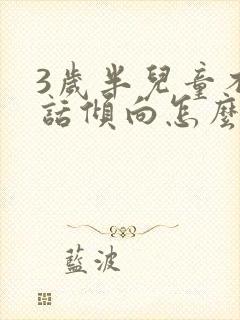 3歲半兒童
話傾向怎麼
藍波